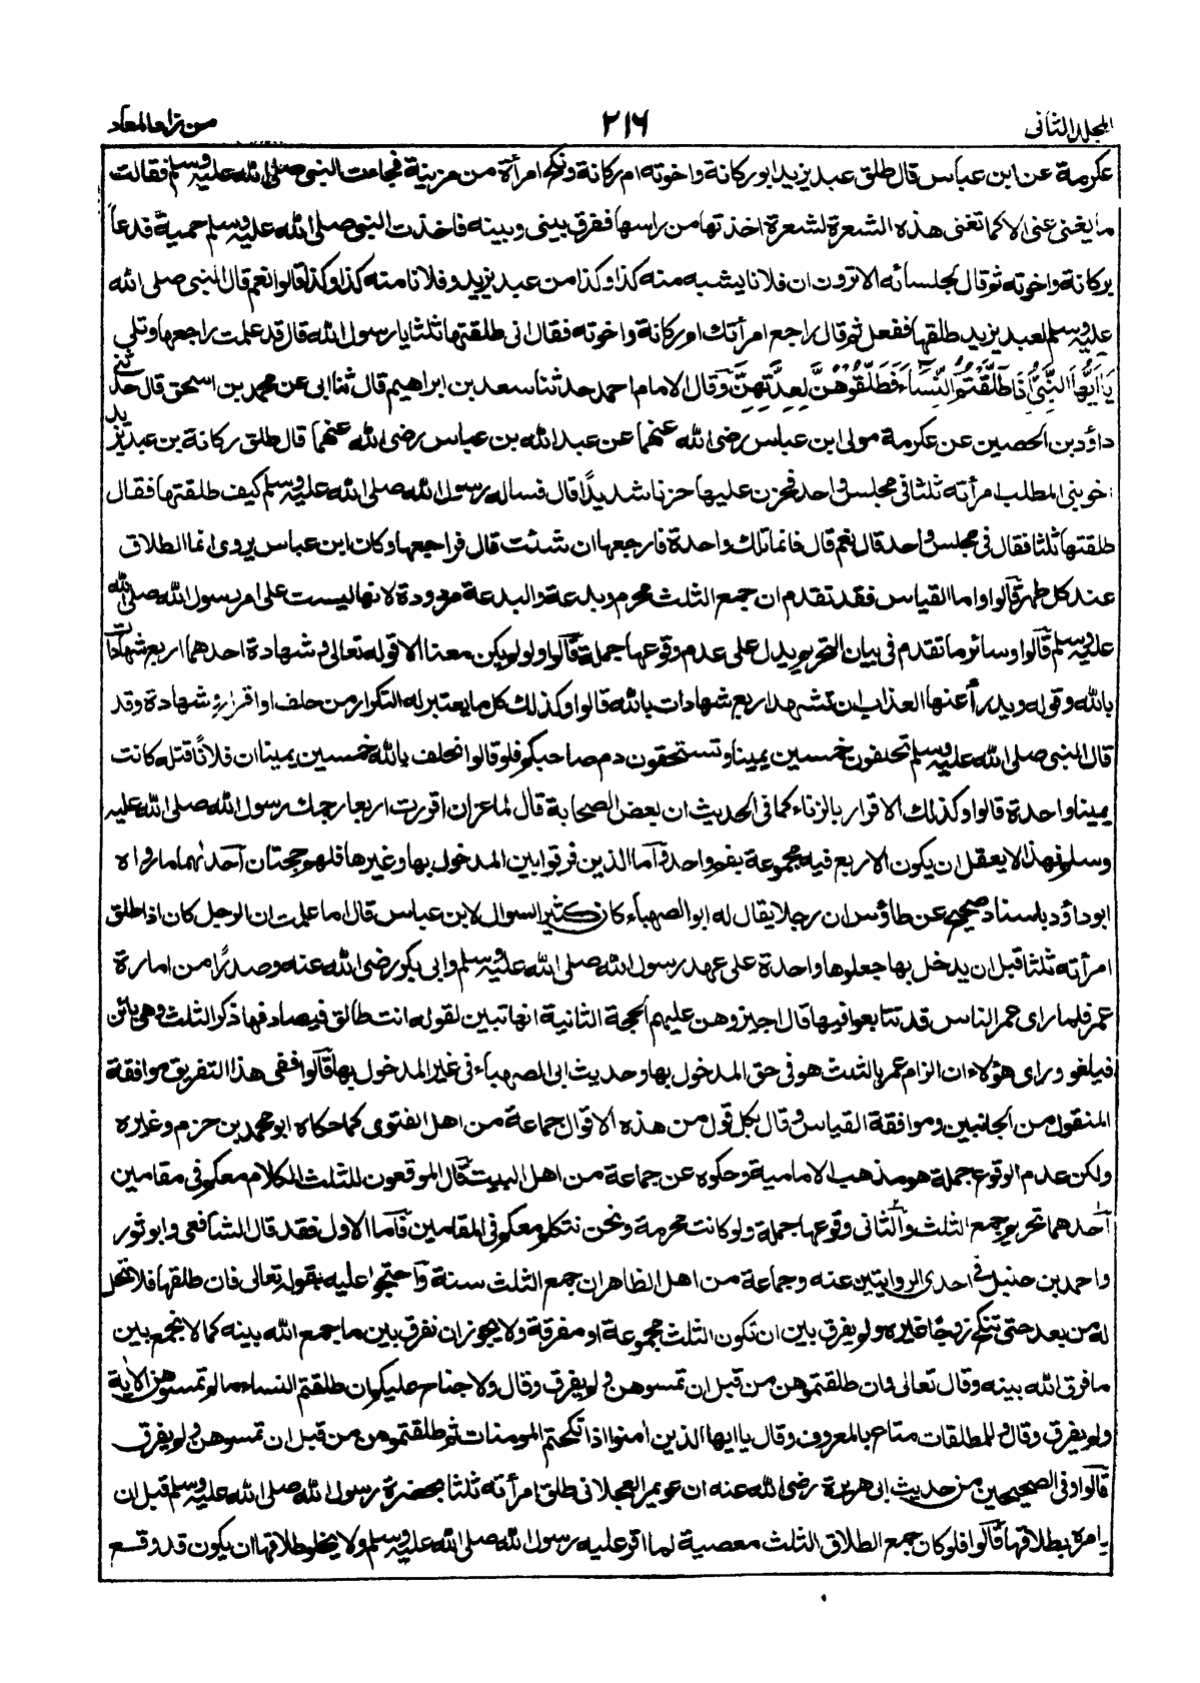 المجلد الثانى
٢١٦
من زاد المعاد
عكرمة عن ابن عباس قال طلق عبد يزيد ابو ركانة واخوته ام ركانة ونكح امرأة من مزينة فجاءت النبى صلى الله عليه وسلم فقالت
ما يغنى عنى الا كما تغنى هذه الشعرة لشعرة اخذتها من راسها ففرق بينى وبينه فاخذت النبى صلى الله عليه وسلم حمية فدعا
بركانة واخوته ثم قال لجلسائه الا ترون ان فلانا يشبه منه كذا وكذا من عبد يزيد وفلانا منه كذا وكذا قالوا نعم قال النبى صلى الله
عليه وسلم لعبد يزيد طلقها ففعل ثم قال راجع امرأتك ام ركانة واخوته فقال انى طلقتها ثلثا يا رسول الله قال قد علمت راجعها وتلى
يَا أَيُّهَا النَّبِيُّ إِذَا طَلَّقْتُمُ النِّسَاءَ فَطَلِّقُوهُنَّ لِعِدَّتِهِنَّ وقال الامام احمد حدثنا سعد بن ابراهيم قال ثنا ابى عن محمد بن اسحق قال حدثنى
داؤد بن الحصين عن عكرمة مولى ابن عباس رضى الله عنهما عن عبد الله بن عباس رضى الله عنهما قال طلق ركانة بن عبد يزيد
اخو بنى المطلب امرأته ثلثا فى مجلس واحد فحزن عليها حزنا شديدًا قال فساله رسول الله صلى الله عليه وسلم كيف طلقتها فقال
طلقتها ثلثا فقال فى مجلس واحد قال نعم قال فانما تلك واحدة فارجعها ان شئت قال فراجعها وكان ابن عباس يروى انما الطلاق
عند كل طهر قالوا واما القياس فقد تقدم ان جمع الثلث محرم وبدعة والبدعة مردودة لانها ليست على امر رسول الله صلى الله
عليه وسلم قالوا وسائر ما تقدم فى بيان التحريم يدل على عدم وقوعها جملة قالوا ولو لم يكن معنا الا قوله تعالى فشهادة احدهم اربع شهادات
بالله وقوله ويدرأ عنها العذاب ان تشهد اربع شهادات بالله قالوا وكذلك كل ما يعتبر له التكرار من حلف او اقرار او شهادة وقد
قال النبى صلى الله عليه وسلم تحلفون خمسين يمينا وتستحقون دم صاحبكم فلو قالوا نحلف بالله خمسين يمينا ان فلانًا قتله كانت
يمينا واحدة قالوا وكذلك الاقرار بالزناء كما فى الحديث ان بعض الصحابة قال لماعز ان اقررت اربعا رجمك رسول الله صلى الله عليه
وسلم فهذا لا يعقل ان يكون الاربع فيه مجموعة بفم واحد فاما الذين فرقوا بين المدخول بها وغيرها فلهم حجتان احدهما ما رواه
ابو داؤد باسناد صحيح عن طاؤس ان رجلا يقال له ابو الصهباء كان كثير السوال لابن عباس قال اما علمت ان الرجل كان اذا طلق
امرأته ثلثا قبل ان يدخل بها جعلوها واحدة على عهد رسول الله صلى الله عليه وسلم وابى بكر رضى الله عنه وصدرًا من امارة
عمر فلما راى عمر الناس قد تتابعوا فيها قال اجيزوهن عليهم الحجة الثانية انها تبين لقوله انت طالق فيصادفها ذكر الثلث وهى بائن
فيلغو وراى هؤلاء ان الزام عمر بالثلث هو فى حق المدخول بها وحديث ابى الصهباء فى غير المدخول بها قالوا ففى هذا التفريق موافقة
المنقول من الجانبين وموافقة القياس وقال بكل قول من هذه الاقوال جماعة من اهل الفتوى كما حكاه ابو محمد بن حزم وغيره
ولكن عدم الوقوع جملة هو مذهب الامامية وحكوه عن جماعة من اهل البيت قال الموقعون للثلث الكلام معكم فى مقامين
احدهما تحريم جمع الثلث والثانى وقوعها جملة ولو كانت محرمة ونحن نتكلم معكم فى المقامين فاما الاول فقد قال الشافعى وابو ثور
واحمد بن حنبل فى احدى الروايتين عنه وجماعة من اهل الظاهر ان جمع الثلث سنة واحتجوا عليه بقوله تعالى فان طلقها فلا تحل
له من بعد حتى تنكح زوجًا غيره ولم يفرق بين ان تكون الثلث مجموعة او مفرقة ولا يجوز ان نفرق بين ما جمع الله بينه كما لا نجمع بين
ما فرق الله بينه وقال تعالى وان طلقتموهن من قبل ان تمسوهن ولم يفرق وقال ولا جناح عليكم ان طلقتم النساء ما لم تمسوهن الآية
ولم يفرق وقال وللمطلقات متاع بالمعروف وقال يا ايها الذين امنوا اذا نكحتم المومنات ثم طلقتموهن من قبل ان تمسوهن ولم يفرق
قالوا وفى الصحيحين من حديث ابى هريرة رضى الله عنه ان عويمر العجلانى طلق امرأته ثلثا بحضرة رسول الله صلى الله عليه وسلم قبل ان
يامره بطلاقها قالوا فلو كان جمع الطلاق الثلث معصية لما اقر عليه رسول الله صلى الله عليه وسلم ولا يخلو طلاقها ان يكون قد وقع